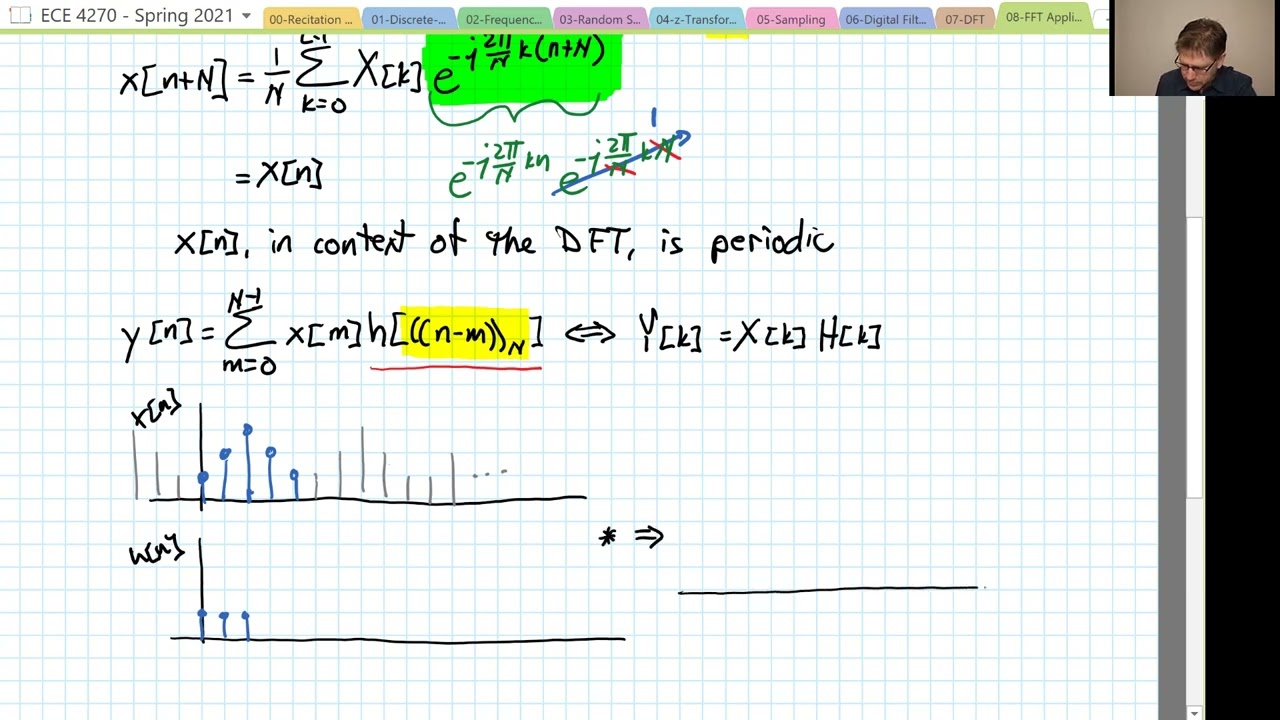 ECE 4270 - Spring 2021
00-Recitation ...
01-Discrete-...
02-Frequenc...
03-Random S...
04-z-Transfor...
05-Sampling
06-Digital Filt...
07-DFT
08-FFT Appli...
x[n+N] = 1/N Σ k=0 X[k] e^{-j 2π/N k(n+N)}
1
= x[n] e^{-j 2π/N kn} e^{-j 2π/N kN}
x[n], in context of the DFT, is periodic
y[n] = Σ_{m=0}^{N-1} x[m] h[((n-m))_N] ⇔ Y[k] = X[k] H[k]
x[n]
...
h[n]
* ⇒